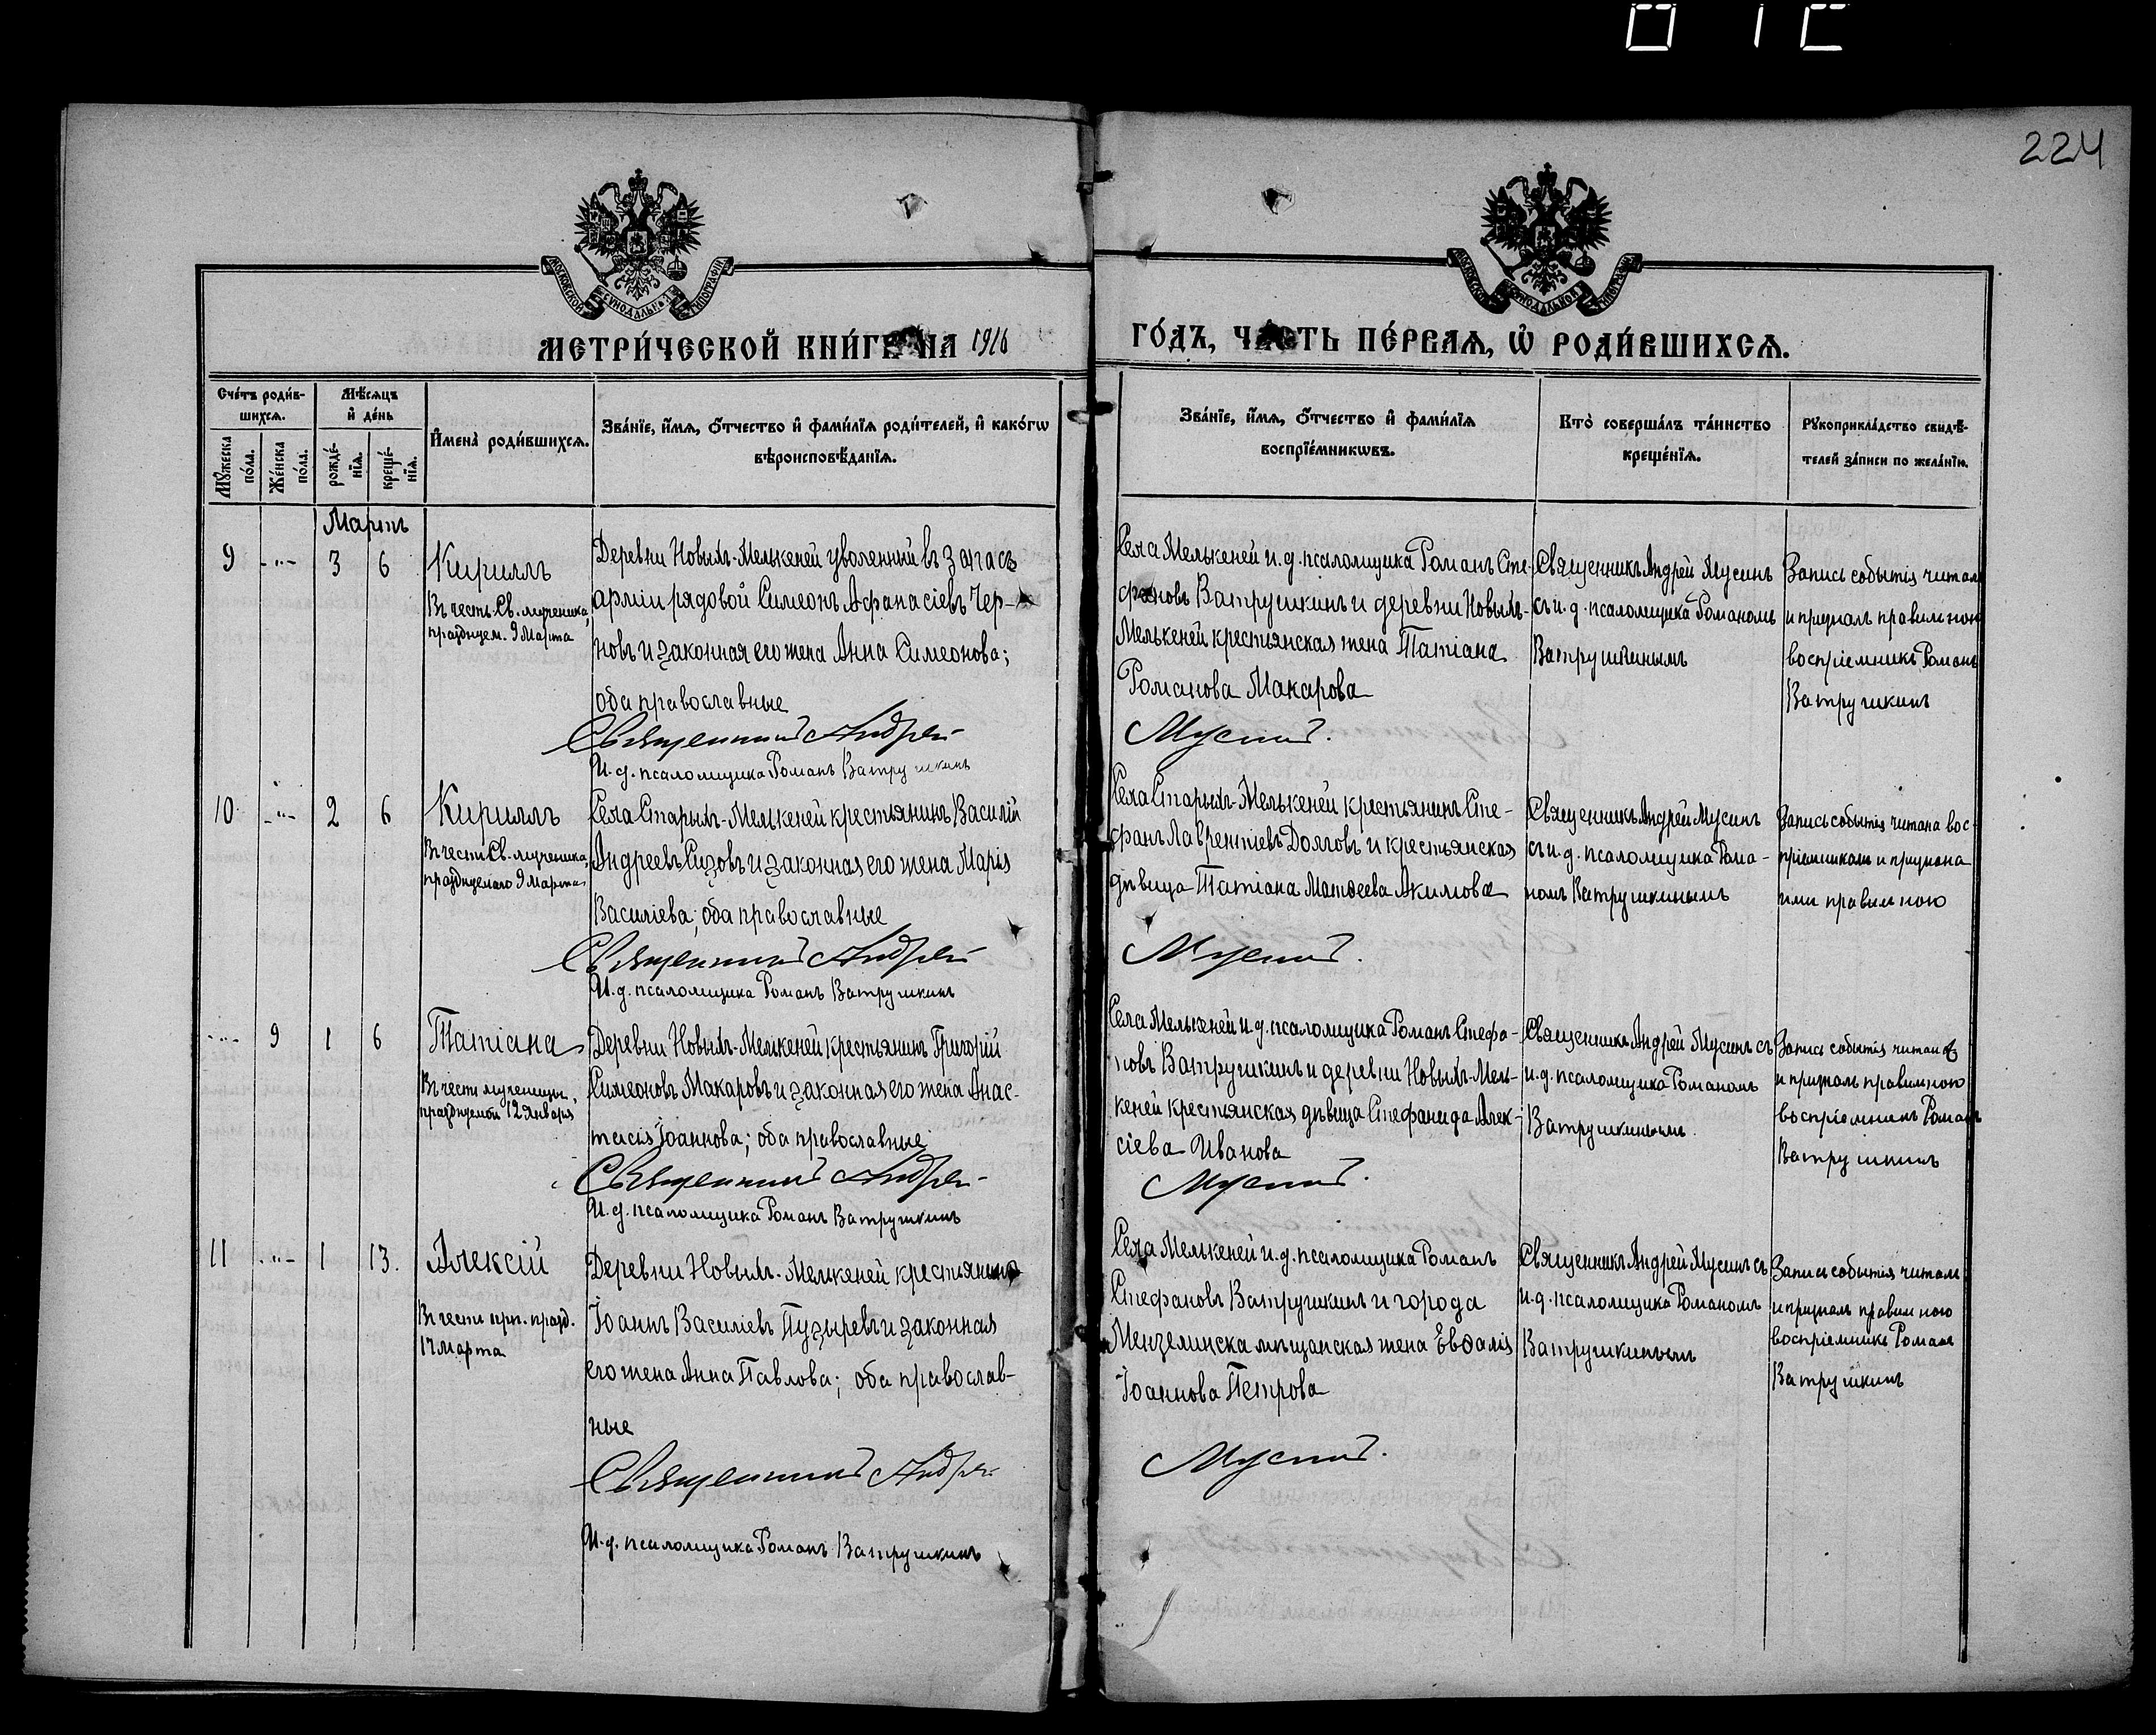 224
МОСКОВСКОЙ СѴНОДАЛЬНОЙ ТИПОГРАФІИ
МОСКОВСКОЙ СѴНОДАЛЬНОЙ ТИПОГРАФІИ
МЕТРИ́ЧЕСКОЙ КНИ́ГѢ НА 1916
ГО́ДЪ, ЧАСТЬ ПЕ́РВАѦ, Ѡ҆ РОДИ́ВШИХСѦ.
Сче́тъ роди́в-
шихсѧ.
Мꙋ́жеска по́ла.
Же́нска по́ла.
Мѣ́сѧцъ
и҆ де́нь
рожде́-
нїѧ.
креще́-
нїѧ.
И҆мена̀ роди́вшихсѧ.
Зва́нїе, и҆́мѧ, ѻ҆́тчество и҆ фами́лїѧ роди́телей, и҆ како́гѡ
вѣроисповѣ́данїѧ.
Зва́нїе, и҆́мѧ, ѻ҆́тчество и҆ фами́лїѧ
воспрїе́мникѡвъ.
Кто̀ соверша́лъ та́инство
креще́нїѧ.
Рꙋкоприкла́дство свидѣ́-
телей за́писи по жела́нїю.
Мартъ
9 -"- 3 6
Кириллъ
Въ честь Св. мученика,
празднуем. 9 Марта
Деревни Новыхъ-Мелькеней уволенный въ запасъ
арміи рядовой Симеонъ Афанасіевъ Чер-
новъ и законная его жена Анна Симеонова;
оба православные
Священникъ Андрей
И. д. псаломщика Романъ Ватрушкинъ
Села Мелькеней и. д. псаломщика Романъ Сте-
фановъ Ватрушкинъ и деревни Новыхъ-
Мелькеней крестьянская жена Татіана
Романова Макарова
Мусинъ.
Священникъ Андрей Мусинъ
съ и. д. псаломщика Романомъ
Ватрушкинымъ
Запись событія читалъ
и призналъ правильною
воспріемникъ Романъ
Ватрушкинъ
10 -"- 2 6
Кириллъ
Въ честь Св. мученика,
празднуемаго 9 Марта
Села Старыхъ-Мелькеней крестьянинъ Василій
Андреевъ Сизовъ и законная его жена Марія
Василіева; оба православные
Священникъ Андрей
И. д. псаломщика Романъ Ватрушкинъ
Села Старыхъ-Мелькеней крестьянинъ Сте-
фанъ Лаврентіевъ Долговъ и крестьянская
дѣвица Татіана Матѳеева Акимова
Мусинъ.
Священникъ Андрей Мусинъ
съ и. д. псаломщика Рома-
номъ Ватрушкинымъ
Запись событія читана вос-
пріемникамъ и признана
ими правильною
-"- 9 1 6
Татіана
Въ честь мученицы,
празднуемой 12 Января
Деревни Новыхъ-Мелькеней крестьянинъ Григорій
Симеоновъ Макаровъ и законная его жена Анас-
тасія Іоаннова; оба православные
Священникъ Андрей
И. д. псаломщика Романъ Ватрушкинъ
Села Мелькеней и. д. псаломщика Романъ Стефа-
новъ Ватрушкинъ и деревни Новыхъ-Мель-
кеней крестьянская дѣвица Стефанида Алек-
сіева Иванова
Мусинъ.
Священникъ Андрей Мусинъ съ
и. д. псаломщика Романомъ
Ватрушкинымъ
Запись событія читалъ
и призналъ правильною
воспріемникъ Романъ
Ватрушкинъ
11 -"- 1 13.
Алексій
Въ честь прп. празд.
17 Марта
Деревни Новыхъ-Мелькеней крестьянинъ
Іоаннъ Василіевъ Пузыревъ и законная
его жена Анна Павлова; оба православ-
ные
Священникъ Андрей
И. д. псаломщика Романъ Ватрушкинъ
Села Мелькеней и. д. псаломщика Романъ
Стефановъ Ватрушкинъ и города
Мензелинска мѣщанская жена Евѳалія
Іоаннова Петрова
Мусинъ.
Священникъ Андрей Мусинъ съ
и. д. псаломщика Романомъ
Ватрушкинымъ
Запись событія читалъ
и призналъ правильною
воспріемникъ Романъ
Ватрушкинъ